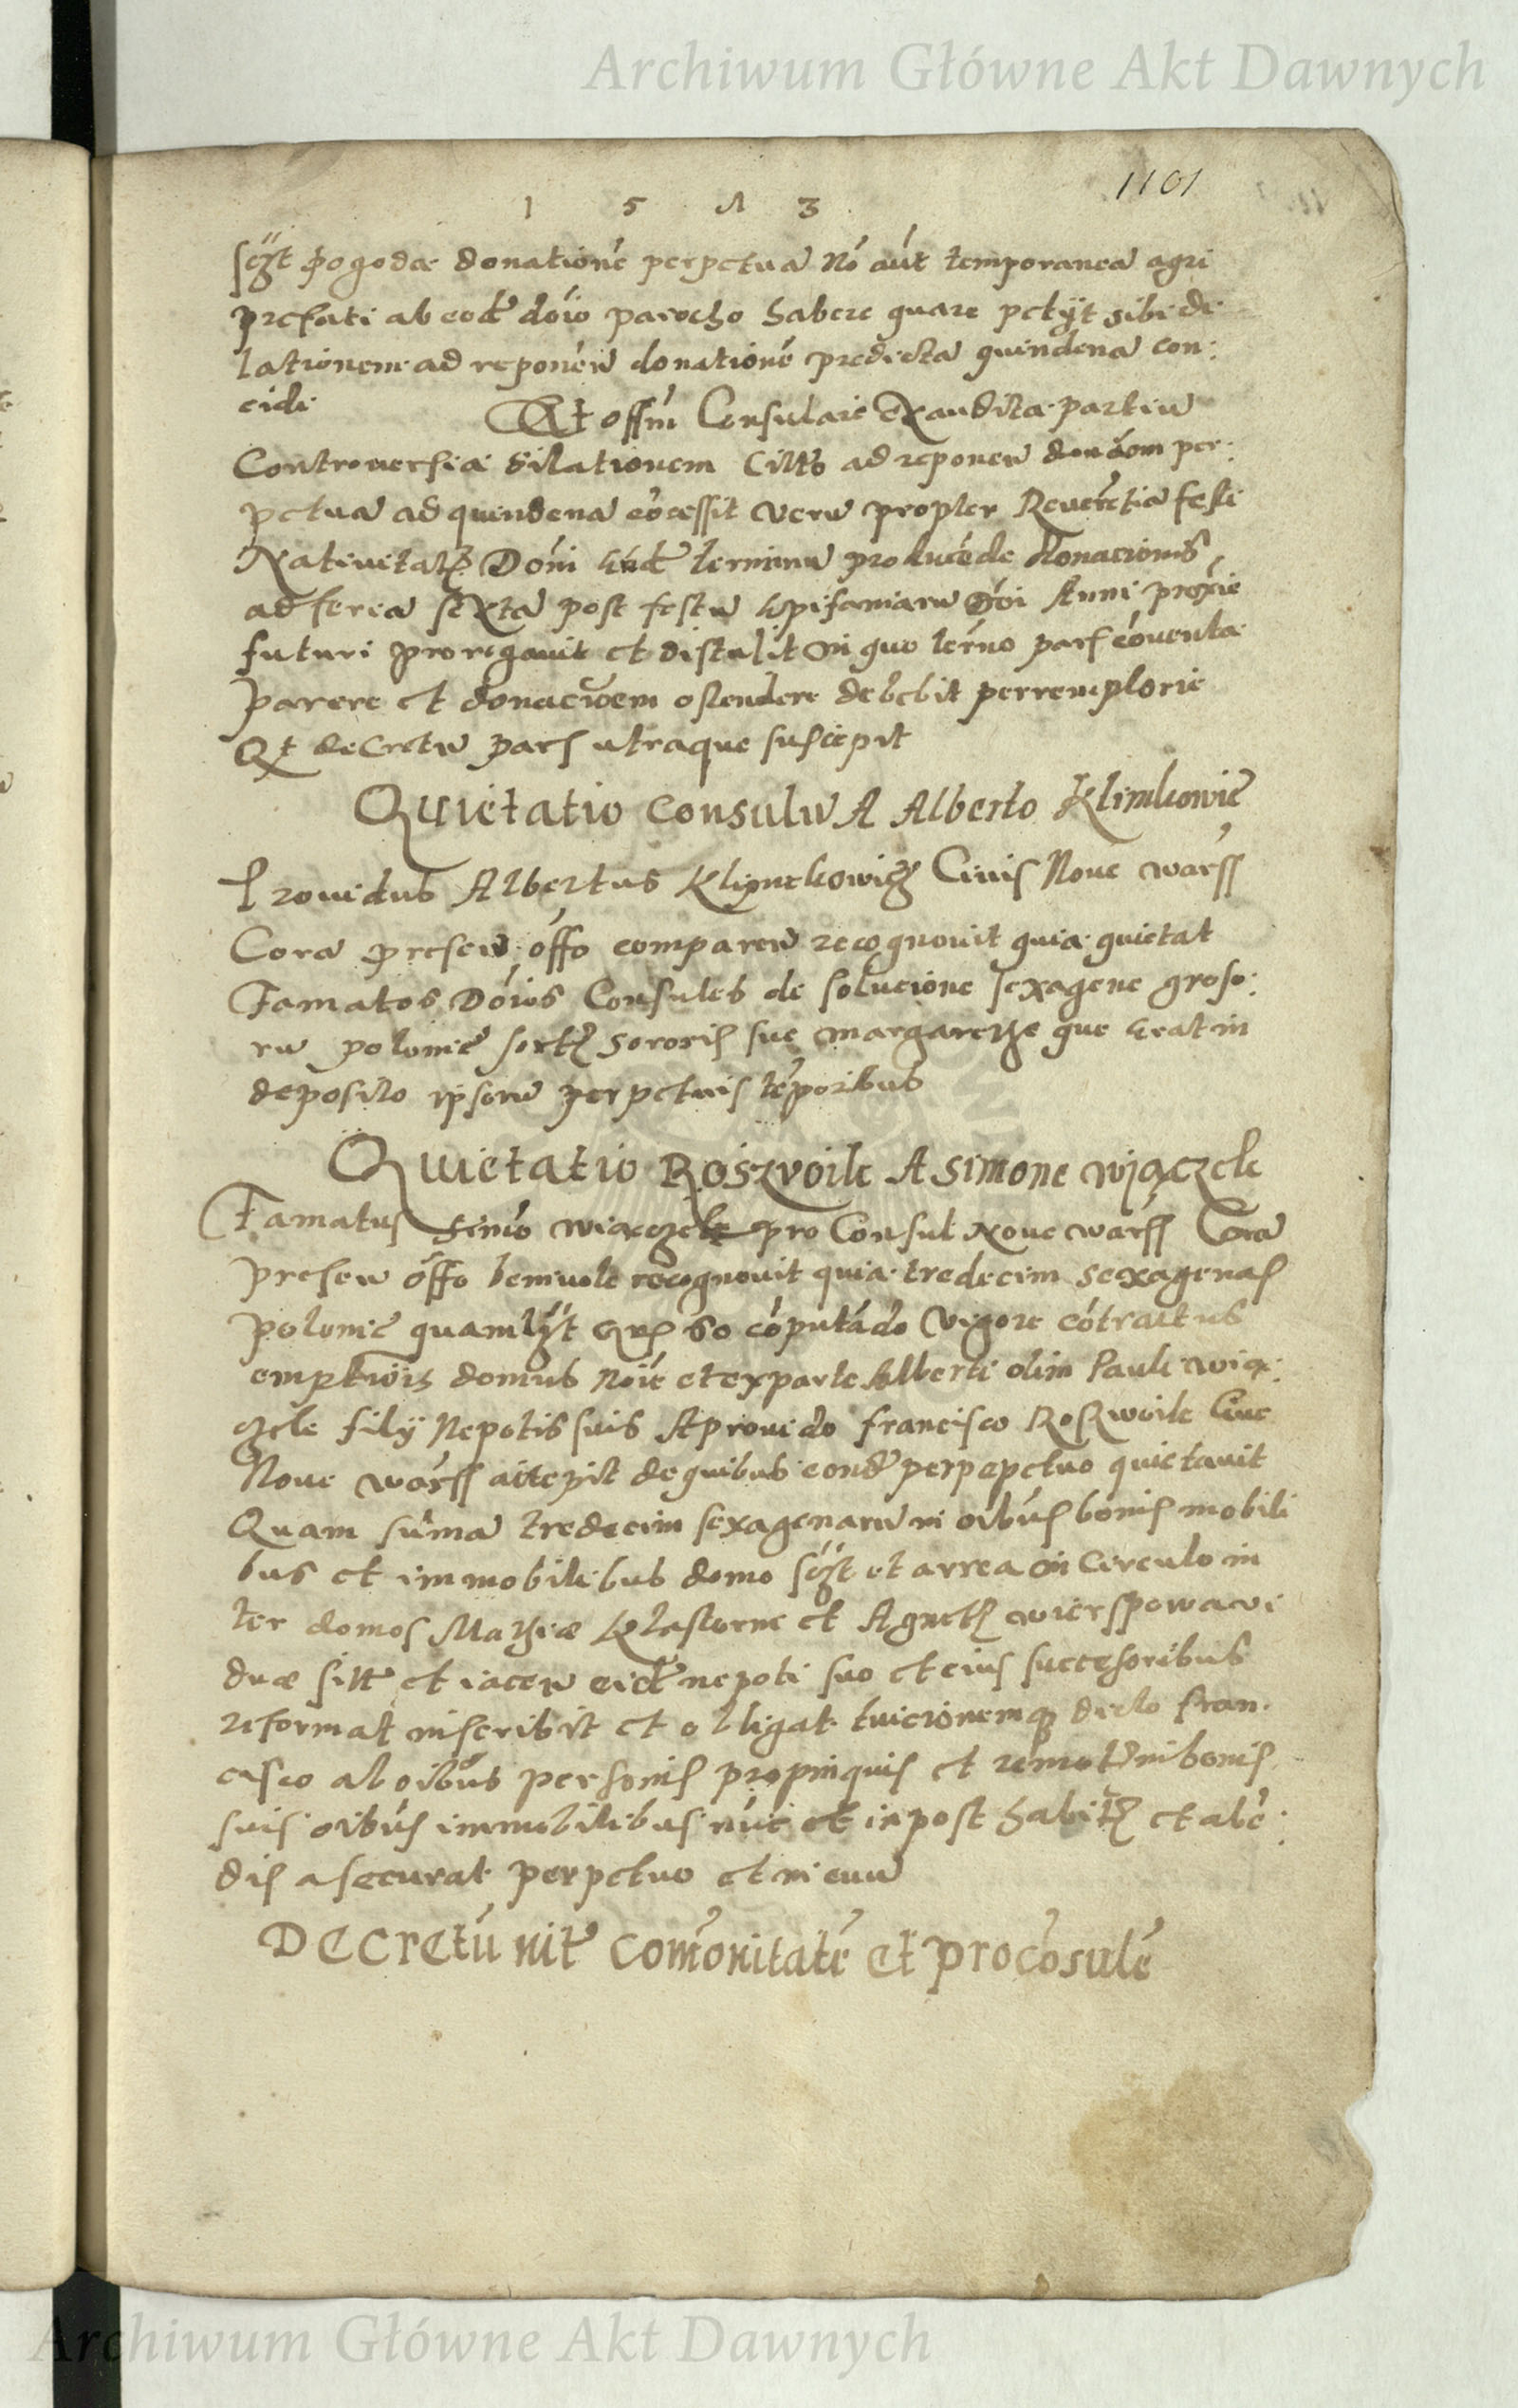 Archiwum Główne Akt Dawnych
1101
1 5 Λ 3
scz̃t pogodæ donationé perpetuā Nó aút temporanea agri
prefati ab eod̃ dóio parocho habere quare petÿt sibi di
lationem ad reponeñ donationé predictā quindena con:
cidi Et offm̃ Consulare Exaudita partiū
Controuersia dilationem ad reponeñ per:
petuā ad quindenā cócessit verū propter Reueretiā festi
Natiuitatẽ Dóni terminū producéde donacionis
ad feriā sextā post festū Epifaniarū Dói Anni proxíe
futuri prorogauit et distulit in quo térno pars cóuenta
parere et donacióem ostendere debebit perremptorie
Qđ decretū pars utraque suscepit
Quietatio Consulū A Alberto Klimkowić
Prouidus Albertus Klymkowicz Ciuis Noue warss
Corā preseñ offo compareñ recognouit quia quietat
Famatos Dóios Consules de solucione sexagene groso:
rū polonić sortẽ sororis sue Margarethe que erat in
deposito ipsorū perpetuis téporibus
Quietatio Roszvoile A Simone wiączele
Famatus Simó wiączele pro Consul Noue warss Corā
preseñ offo beniuole recognouit quia tredecim sexagenas
polonić quamlz̃t 60 cóputádo vigore cótractus
emptióis domus Nóie et ex parte Alberti olim Pauli wią:
czele filÿ Nepotis suis A prouido francisco Roszwoile Ciue
Noue warss accepit de quibus eond̃ perpepctuo quietauit
Quam sum̃a tredecim sexagenarū in oíbus bonis mobili
bus et immobilibus domo scz̃t et arrea in Circulo in
ter domos Mathiæ Klastorne et Agnetẽ wierspowa vi
duæ sitt̃ et iaceñ eid̃ nepoti suo et eius successoribus
reformat inscribit et obligat tuicionemq̃ dicto fran.
cisco ab oíbus personis propinquis et remotĩs in bonis
suis oíbus immobilibus núc et inpost habitẽ et abé:
dis asecurat perpetuo et in euū
Decretú int̃ Comónitaté et procósulé
Archiwum Główne Akt Dawnych